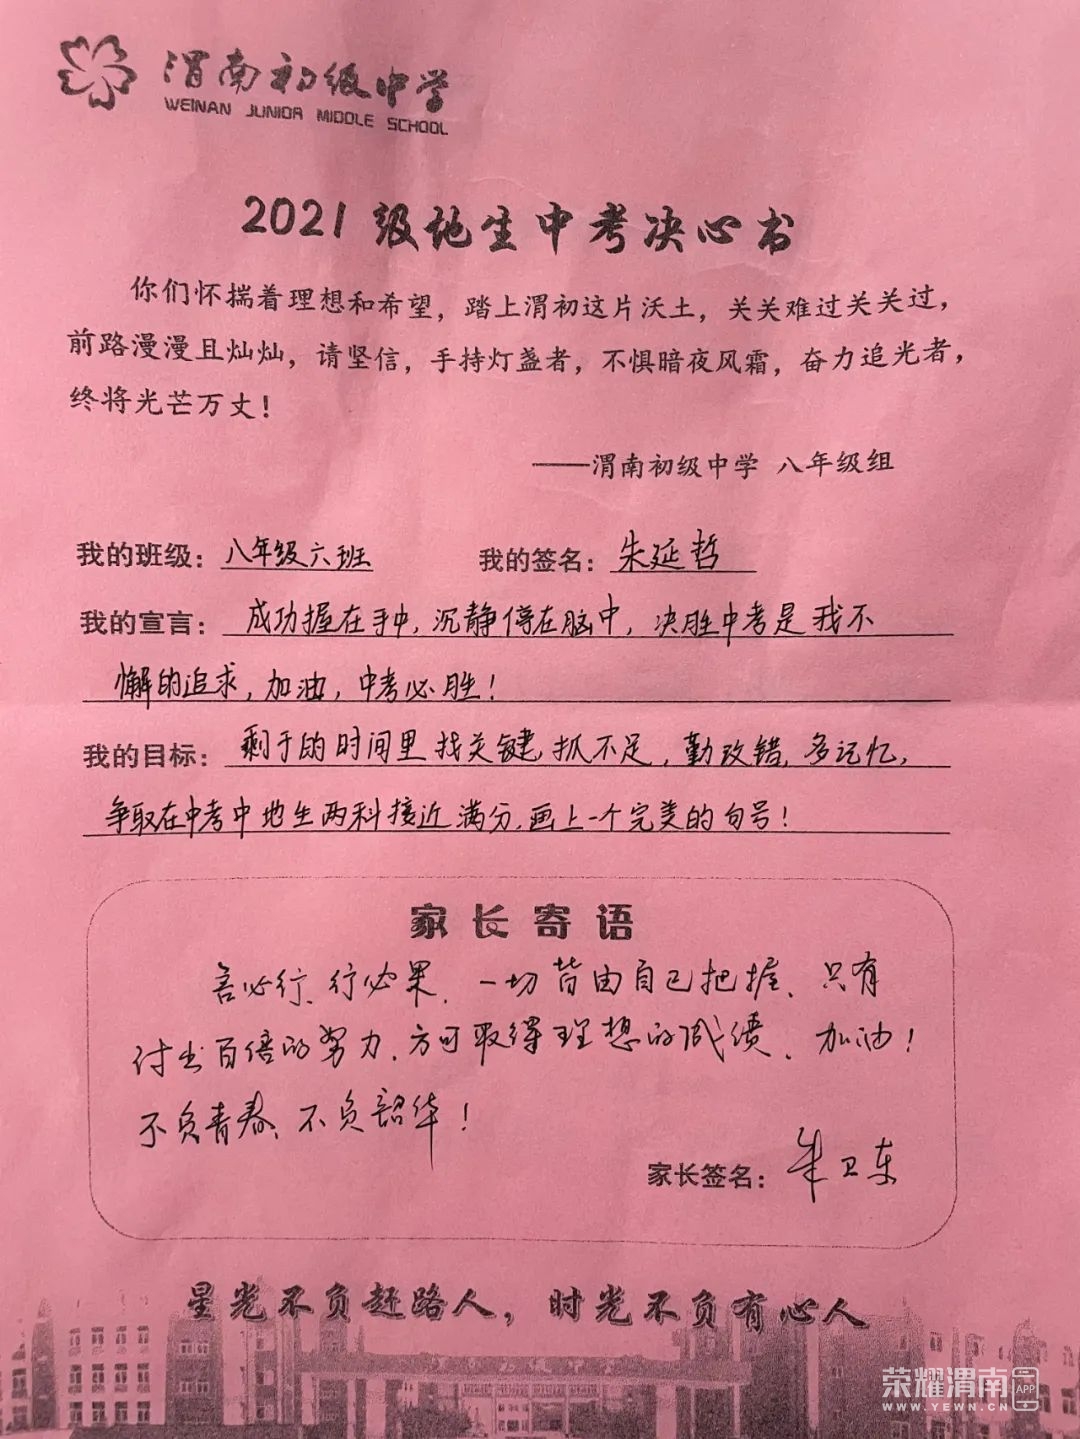 渭南初级中学
WEINAN JUNIOR MIDDLE SCHOOL
2021级地生中考决心书
你们怀揣着理想和希望，踏上渭初这片沃土，关关难过关关过，
前路漫漫且灿灿，请坚信，手持灯盏者，不惧暗夜风霜，奋力追光者，
终将光芒万丈！
——渭南初级中学 八年级组
我的班级：八年级六班 我的签名：朱延哲
我的宣言：成功握在手中，沉静停在脑中，决胜中考是我不
懈的追求，加油，中考必胜！
我的目标：剩于的时间里找关键，抓不足，勤改错，多记忆，
争取在中考中地生两科接近满分，画上一个完美的句号！
家长寄语
言必行、行必果，一切皆由自己把握、只有
付出百倍的努力，方可取得理想的成绩、加油！
不负青春、不负韶华！
家长签名：朱卫东
星光不负赶路人，时光不负有心人
渭南初级中学
荣耀渭南 APP
www.YEWN.cn